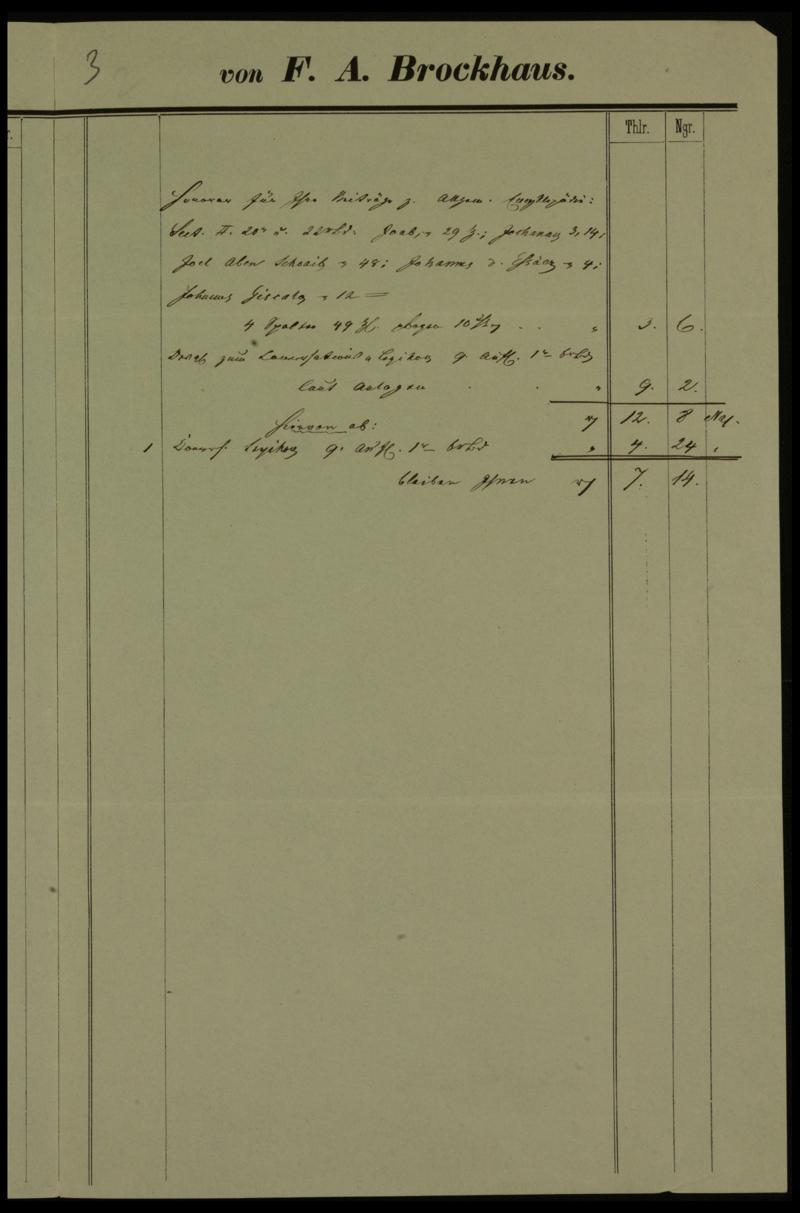 3
von F. A. Brockhaus.
Thlr. Ngr.
Honorar für Ihre Beiträge z. Allgem. Encyklopädie:
Sect. II. 20r u. 22r Bd. Joab, 29 Z.; Jochanan 3, 14,
Joel Aben Schoaib 48; Johannes d. 4;
Johannes Giscala 12 =
4 Spalten 49 Z. 10 " 3. 6.
zum Conversations Lexikon 9. Aufl. 1r Bd
laut Anlagen " 9. 2.
12. 8
Hiervon ab:
1 Convers. Lexikon 9. Aufl. 1r Bd " 4. 24
bleiben Ihnen 7. 14.